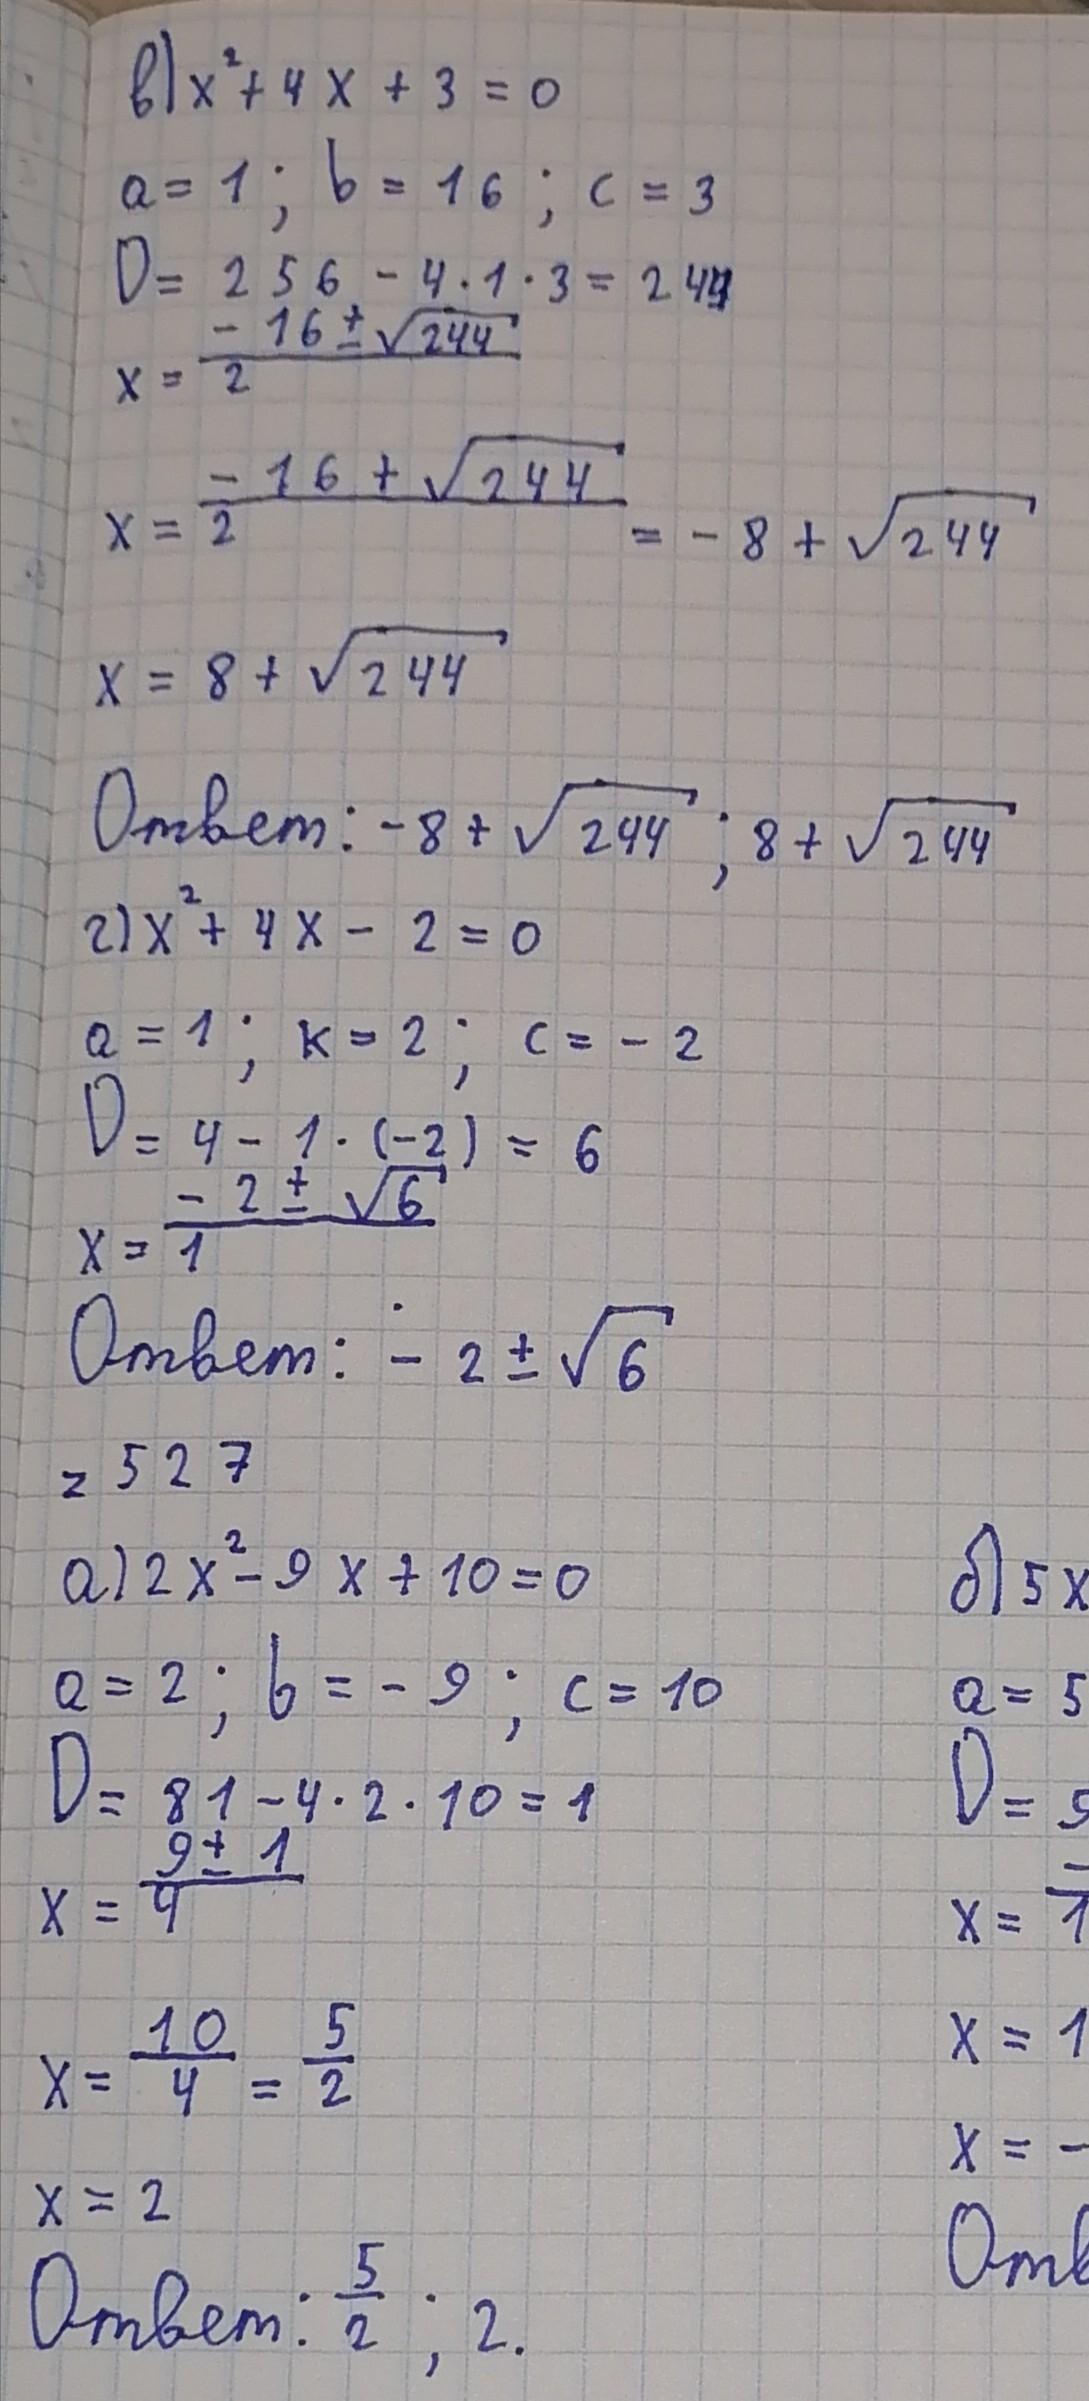 в) x² + 4x + 3 = 0
a = 1; b = 16; c = 3
D = 256 - 4·1·3 = 244
x = (-16 ± √244)/2
x = (-16 + √244)/2 = -8 + √244
x = 8 + √244
Ответ: -8 + √244; 8 + √244
г) x² + 4x - 2 = 0
a = 1; к = 2; c = -2
D = 4 - 1·(-2) = 6
x = (-2 ± √6)/1
Ответ: -2 ± √6
= 527
а) 2x² - 9x + 10 = 0
a = 2; b = -9; c = 10
D = 81 - 4·2·10 = 1
x = (9 ± 1)/4
x = 10/4 = 5/2
x = 2
Ответ: 5/2; 2.
б) 5x
a = 5
D = 9
x = -/1
x = 1
x = -
Отв